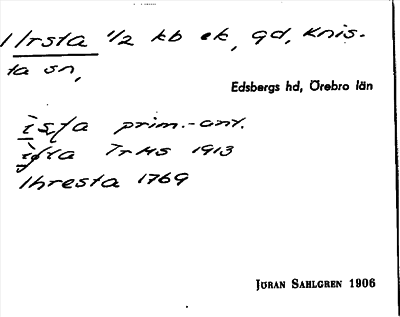 Irsta 1/2 kb ek, gd, Knis-
ta sn,
Edsbergs hd, Örebro län
prim.-ant.
TrHs 1913
Ihresta 1769
JÖRAN SAHLGREN 1906